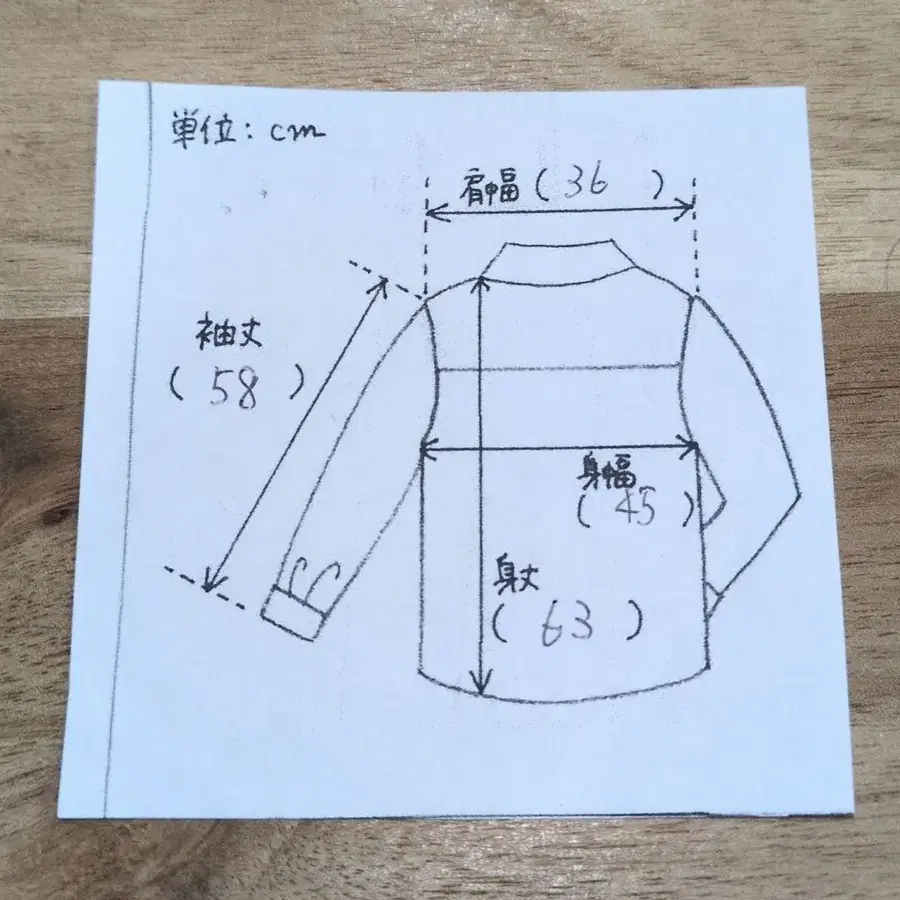 単位：cm
肩幅（36）
袖丈
（58）
身幅
（45）
身丈
（63）